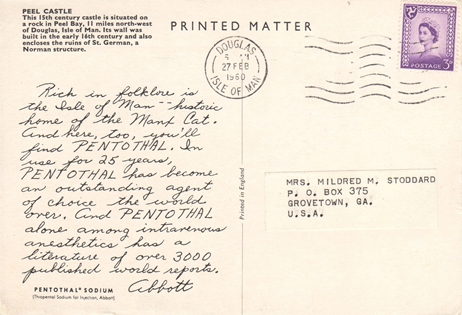 PEEL CASTLE
This 15th century castle is situated on
a rock in Peel Bay, 11 miles north-west
of Douglas, Isle of Man. Its wall was
built in the early 16th century and also
encloses the ruins of St. German, a
Norman structure.
PRINTED MATTER
DOUGLAS
27 FEB
1960
ISLE OF MAN
POSTAGE
3D
Rich in folklore is
the Isle of Man -- historic
home of the Manx Cat.
And here, too, you'll
find PENTOTHAL. In
use for 25 years,
PENTOTHAL has become
an outstanding agent
of choice the world
over. And PENTOTHAL
alone among intravenous
anesthetics has a
literature of over 3000
published world reports.
Abbott
PENTOTHAL® SODIUM
(Thiopental Sodium for Injection, Abbott)
Printed in England
MRS. MILDRED M. STODDARD
P. O. BOX 375
GROVETOWN, GA.
U.S.A.